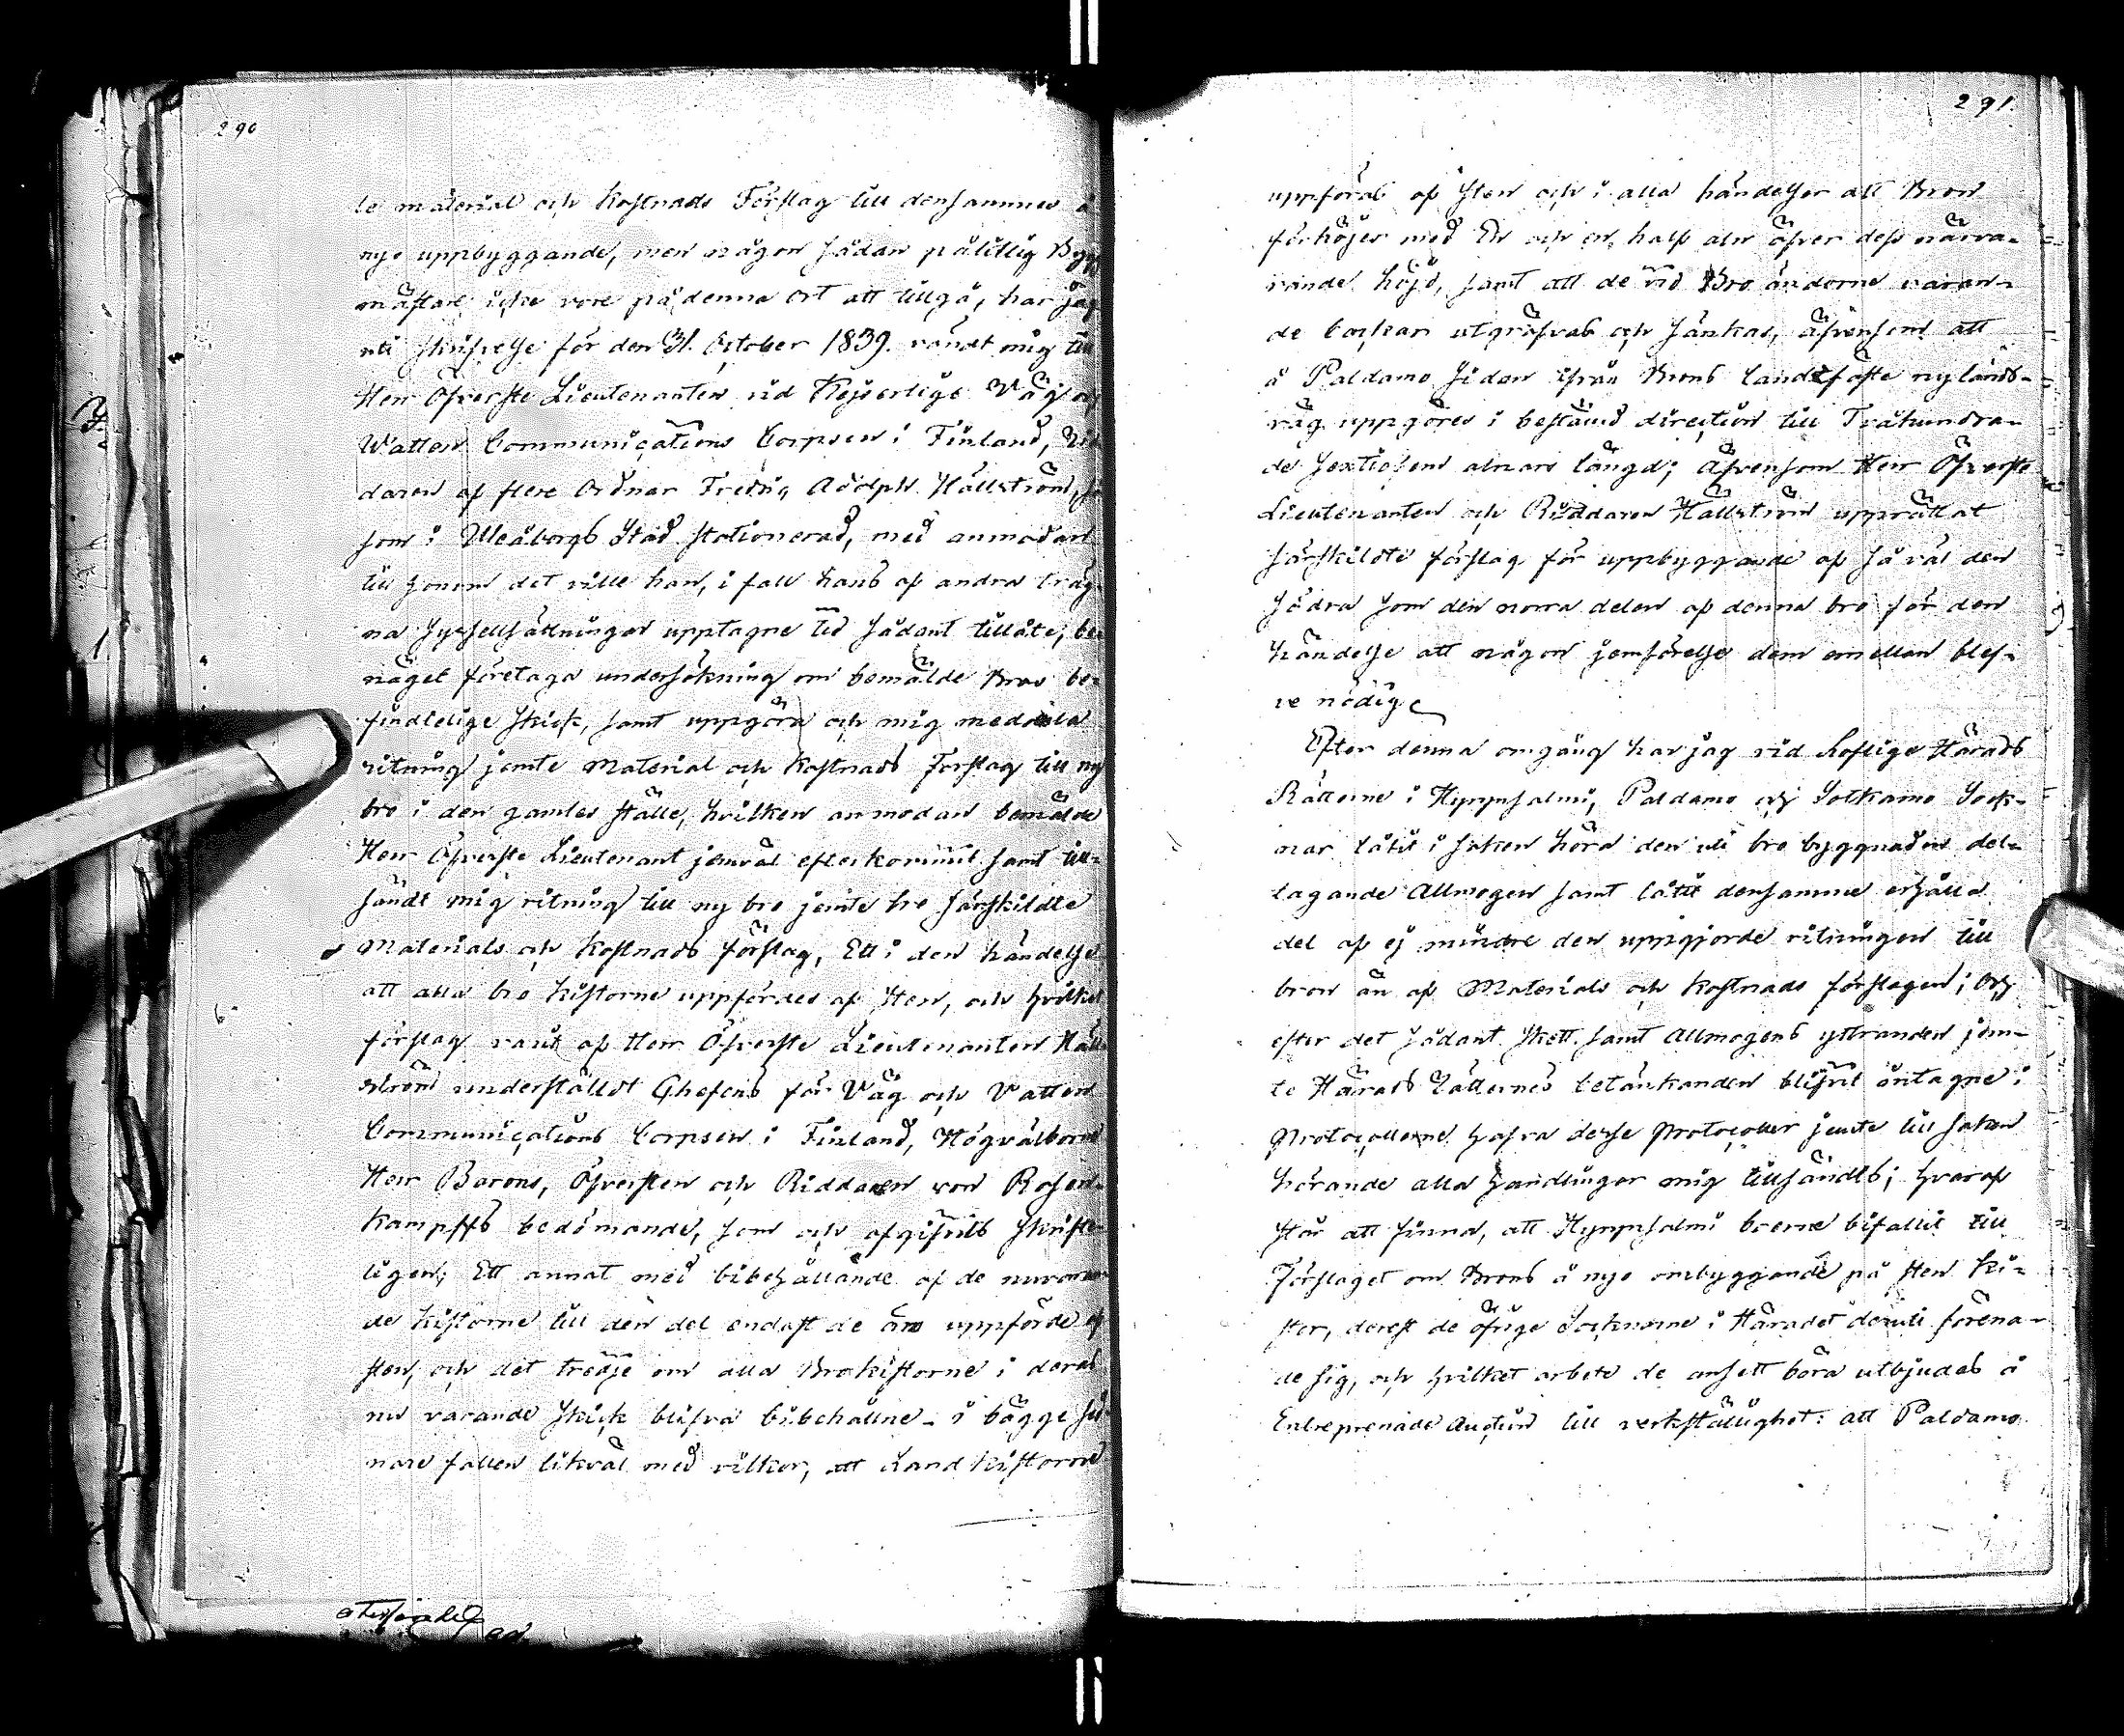 290
te material och Kostnads Förslag till densammes å
nyo uppbyggande, men någon sådan pålitlig Byg
mästare icke vore på denna ort att tillgå, har jag
uti skrifvelse för den 31. October 1839. vändt mig till
Herr Öfverste Lieutenanten vid Kejserliga Väg och
Watten Communications Corpsen i Finland, Rid
daren af flere Ordnar Fredric Adolph Hällström, så
som i Uleåborgs Stad stationerad, med anmodan
till honom det ville han, i fall hans af andra träg-
na sysselsättningar upptagne tid sådant tilläte, be-
näget företaga undersökning om bemälde Bros be-
findtelige skick, samt uppgöra och mig meddela
ritning jemte Material och Kostnads Förslag till ny
bro i den gamles ställe, hvilken anmodan bemälde
Herr Öfverste Lieutenant jemväl efterkommit samt till-
sändt mig ritning till ny bro jemte tre särskildte
Materials och Kostnads förslag, Ett i den händelse
att alla bro kistorne uppfördes af Sten, och hvilket
förslag varit af Herr Öfverste Lieutenanten Häll-
ström underställdt Chefens för Väg och Vatten
Communications Corpsen i Finland, Högvälborne
Herr Barons, Öfversten och Riddaren von Rosen-
Kampffs bedömande, som och afgifvits skrifte-
ligen; Ett annat med bibehållande af de nuvaran-
de kistorne till den del endast de äro uppförde af
sten, och det tredje om alla Brokistorne i deras
nu varande skick blifva bibehållne - i bägge se-
nare fallen likväl med vilkor, att Land kistorne
291.
uppföras af Sten och i alla händelser att Bron
förhöjes med En och en half aln öfver dess närva-
rande höjd, samt att de vid Bro ändorne varan-
de backar utgräfvas och sänkas, äfvensom att
å Paldamo sidan ifrån Brons landtfäste ny lands-
väg uppgöres i bestämd direction till Tvåhundra-
de Sextiofem alnars längd; Äfvensom Herr Öfverste
Lieutenanten och Riddaren Hällström upprättat
särskildte förslag för uppbyggande af så väl den
södra som den norra delen af denna bro för den
händelse att någon jemförelse dem emellan blef-
ve nödig
Efter denna omgång har jag vid Loflige Härads
Rätterne i Hyrynsalmi, Paldamo och Sotkamo Sock-
nar låtit i saken höra den uti bro byggnaden del-
tagande Allmogen samt låtit densamme erhålla
del af ej mindre den uppgjorde ritningen till
bron än af Materials och Kostnads förslagen; och
efter det sådant skett samt Allmogens yttranden jem-
te Härads Rätternes betänkanden blifvit intagne i
Protocollerne hafva desse Protocoller jemte till saken
hörande alla handlingar mig tillsändts; hvaraf
står att finna, att Hyrynsalmi boerne bifallit till
Förslaget om Brons å nyo ombyggande på sten ki-
stor, derest de öfrige Socknarne i Häradet deruti förena-
de sig, och hvilket arbete de ansett böra utbjudas å
Entreprenade Auction till verkställighet: att Paldamo